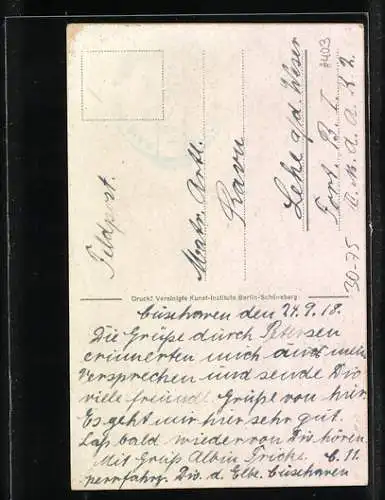 Feldpost.
Matr. Artl.
Ravu
Lehe a/d. Weser
Fort B. I.
II. M. A. A. K 2.
#403
30-75
Druck: Vereinigte Kunst-Institute Berlin-Schöneberg
Cuxhaven den 24.9.18.
Die Grüße durch Petersen
erinnerten mich an mein
Versprechen und sende Dir
viele freundl. Grüße von hier.
Es geht mir hier sehr gut.
Laß bald wieder von Dir hören.
Mit Gruß Albin Fricke.
Sperrfahrz. Div. d. Elbe. Cuxhaven